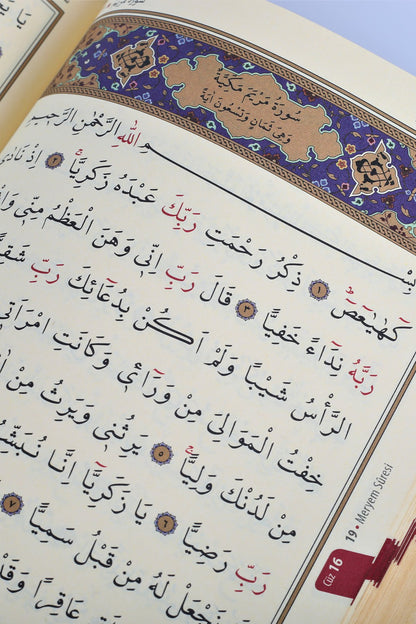 سُورَةُ مَرْيَمَ مَكِّيَّةٌ
وَهِيَ ثَمَانٍ وَتِسْعُونَ اٰيَةً
بِسْــــــمِ اللّٰهِ الرَّحْمٰنِ الرَّحٖيمِ
كٓهٰيٰعٓصٓ ﴿١﴾ ذِكْرُ رَحْمَتِ رَبِّكَ عَبْدَهُ زَكَرِيَّاۚ ﴿٢﴾ اِذْ نَادٰى
رَبَّهُ نِدَٓاءً خَفِيًّا ﴿٣﴾ قَالَ رَبِّ اِنّٖي وَهَنَ الْعَظْمُ مِنّٖي
الرَّأْسُ شَيْبًا وَلَمْ اَكُنْ بِدُعَٓائِكَ رَبِّ
خِفْتُ الْمَوَالِيَ مِنْ وَرَٓاءٖي وَكَانَتِ امْرَاَتٖي
مِنْ لَدُنْكَ وَلِيًّاۙ ﴿٥﴾ يَرِثُنٖي وَيَرِثُ مِنْ
رَبِّ رَضِيًّا ﴿٦﴾ يَا زَكَرِيَّٓا اِنَّا
نَجْعَلْ لَهُ مِنْ قَبْلُ سَمِيًّا ﴿٧﴾
عَاقِرًا وَقَدْ
19 • Meryem Sûresi
Cüz 16